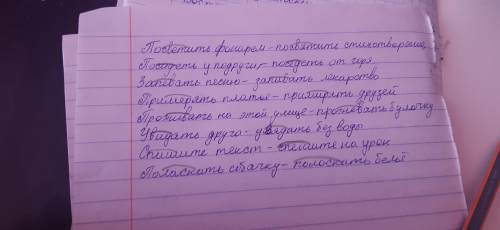 Посветить фонарем - посвятить стихотворение
Посидеть у подруги - поседеть от горя.
Запевать песню - запивать лекарство
Примерять платье - примирять друзей
Проживать на этой улице - прожевать булочку
Увидать друга - увядать без воды
Спишите текст - спешите на урок
Поласкать собачку - полоскать бельё